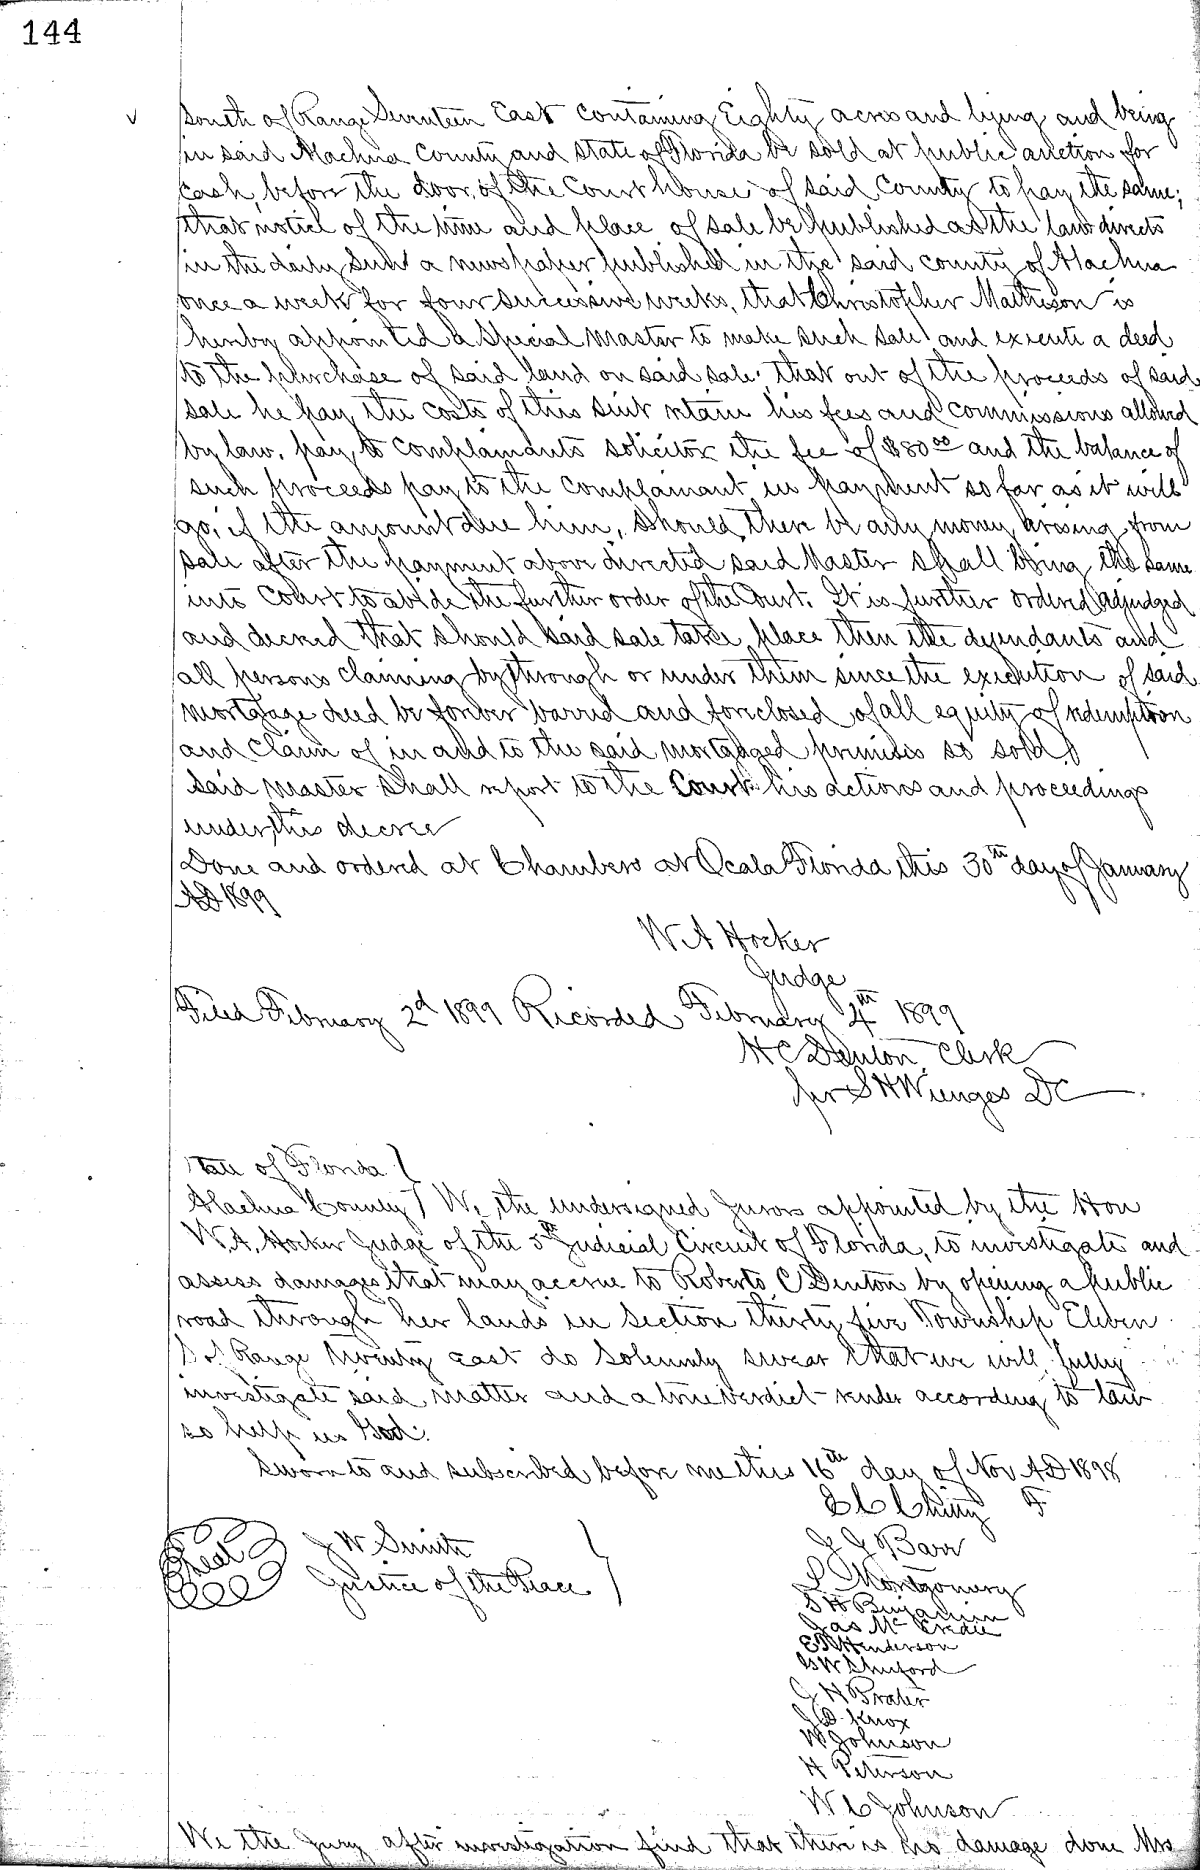 144
South of Range Seventeen East containing Eighty acres and lying and being
in said Alachua County and State of Florida be sold at public auction for
cash, before the door of the Court house of said County to pay the same;
that notice of the time and place of sale be published as the law directs
in the daily Sun a newspaper published in the said county of Alachua
once a week for four successive weeks, that Christopher Matheson is
hereby appointed a Special Master to make such sale and execute a deed
to the purchase of said land on said sale. that out of the proceeds of said
sale he pay the costs of this suit retain his fees and commissions allowed
by law, pay to complainants solicitor the fee of $80 00 and the balance of
such proceeds pay to the complainant in payment so far as it will
go, if the amount due him, should there be any money arising from
sale after the payment above directed said Master shall bring the same
into Court to abide the further order of the Court. It is further ordered adjudged
and decreed that should said sale take place then the defendants and
all persons claiming by through or under them since the execution of said
mortgage deed be forever barred and foreclosed of all equity of redemption
and claim of in and to the said mortgaged premises so sold
Said master shall report to the Court his actions and proceedings
under this decree
Done and ordered at Chambers at Ocala Florida this 30th day of January
AD 1899
W. A Hocker
Judge
Filed February 2d 1899 Recorded February 4th 1899
H C Denton Clerk
per S H Wienges DC
State of Florida }
Alachua County } We, the undersigned Jurors appointed by the Hon
W. A. Hocker Judge of the 5th Judicial Circuit of Florida, to investigate and
assess damages that may accrue to Roberta C Denton by opening a public
road through her lands in Section thirty five Township Eleven
S of Range twenty east do solemnly swear that we will fully
investigate said matter and a true verdict render according to law
so help us God.
Sworn to and subscribed before me this 16th day of Nov AD 1898
E C Chitty F
Seal J W Smith } J J Barr
Justice of the Peace
S Montgomery
S H Benjamin
Jas Mc Credie
E Henderson
G W Shuford
J H Prater
J D Knox
W Johnson
H Peterson
W C Johnson
We the Jury after investigation find that there is no damage done Mrs